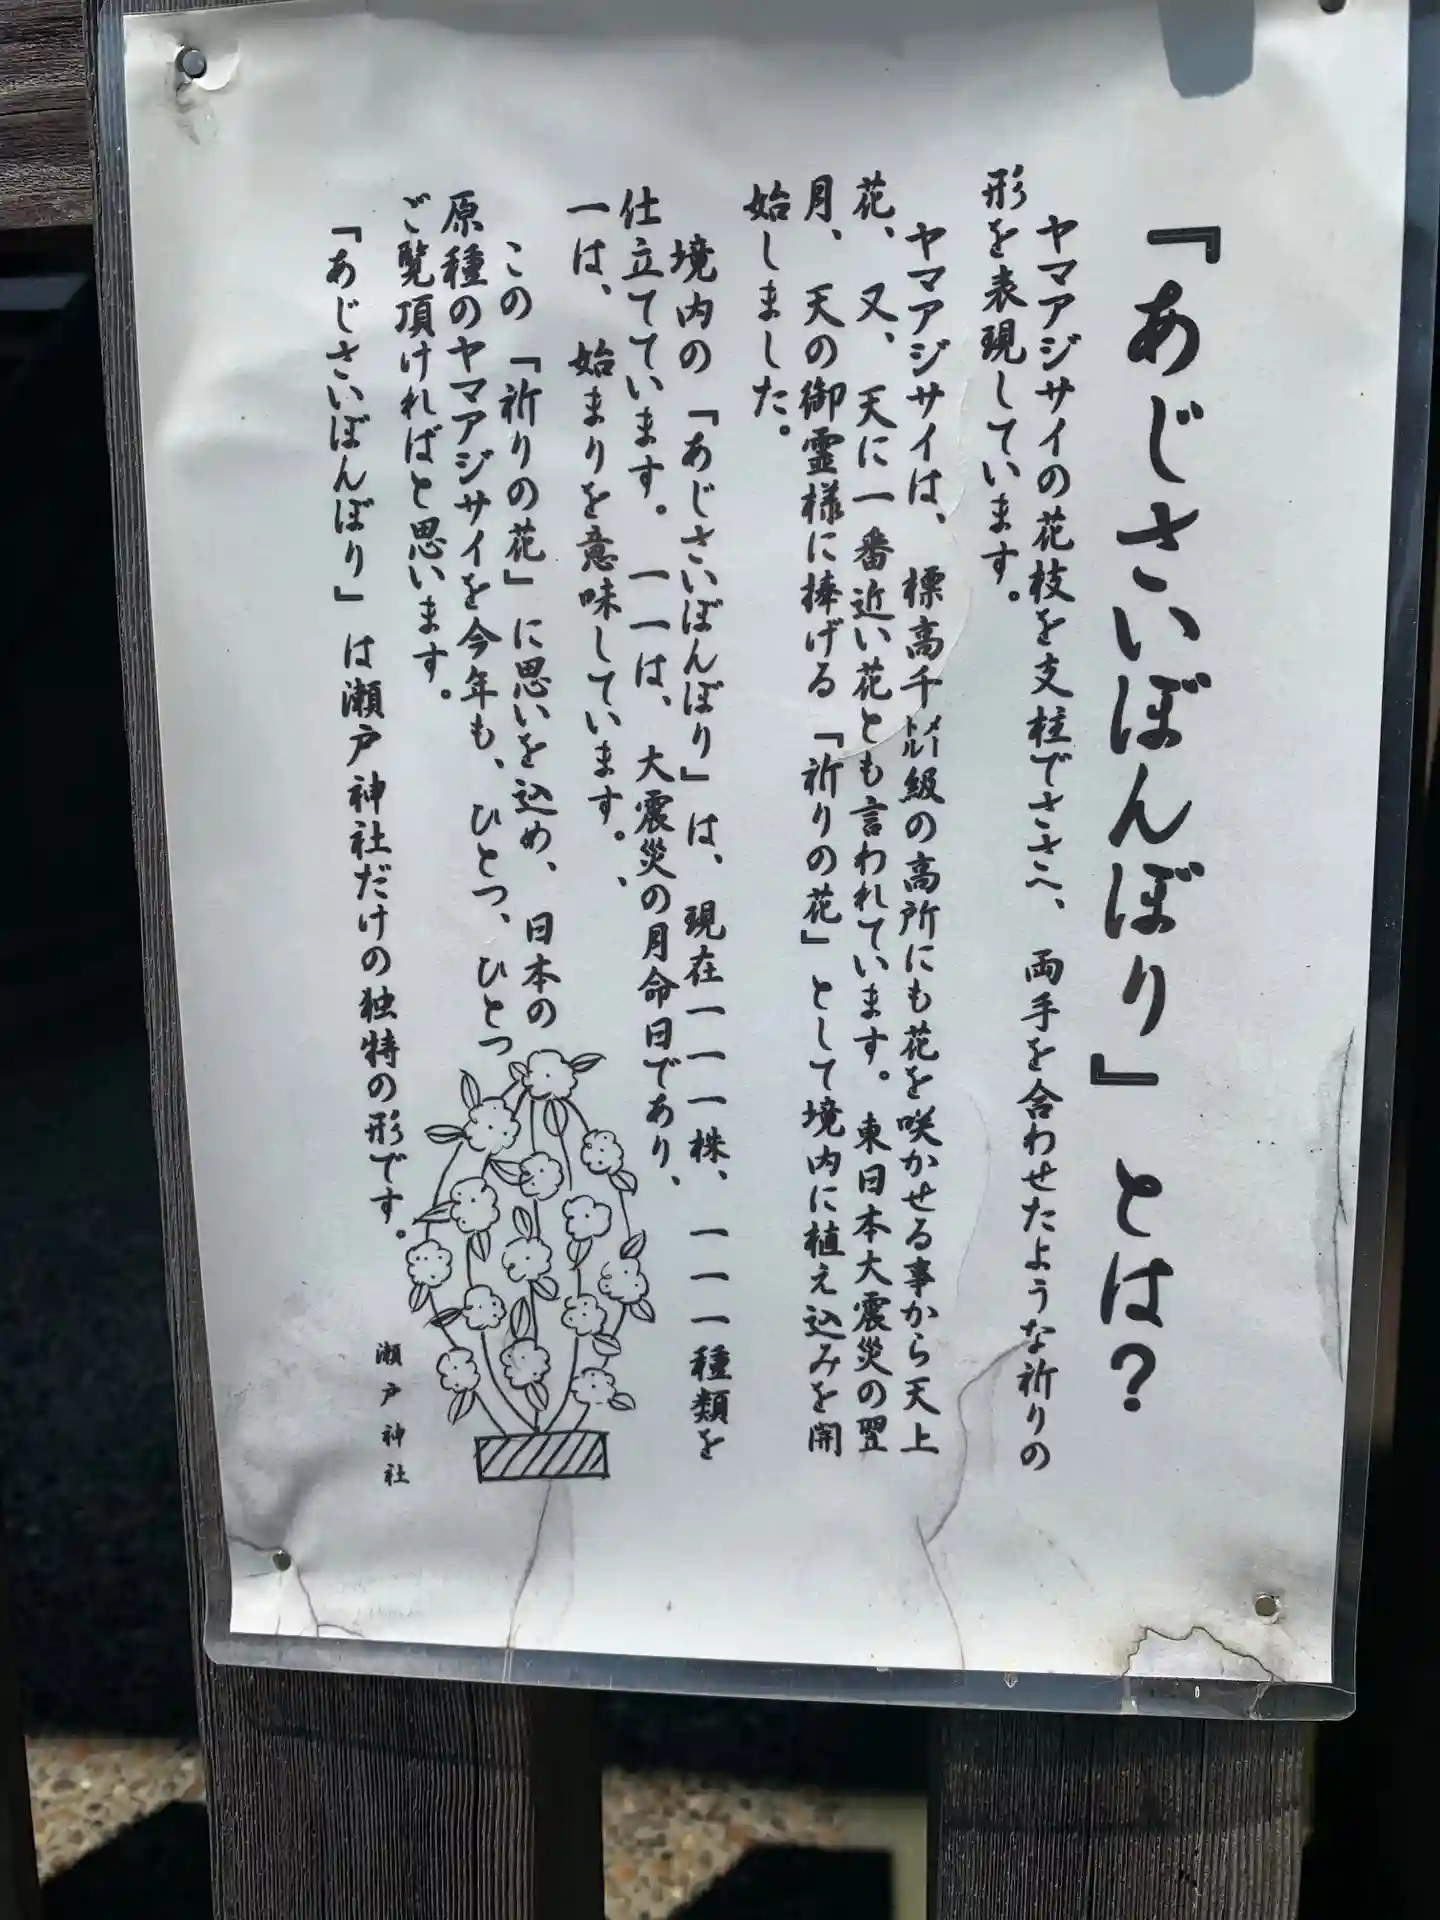 『あじさいぼんぼり』とは？
ヤマアジサイの花枝を支柱でささへ、両手を合わせたような祈りの
形を表現しています。
ヤマアジサイは、標高千㍍級の高所にも花を咲かせる事から天上
花、又、天に一番近い花とも言われています。東日本大震災の翌
月、天の御霊様に捧げる「祈りの花」として境内に植え込みを開
始しました。
境内の「あじさいぼんぼり」は、現在一一一株、一一一種類を
仕立てています。一一は、大震災の月命日であり、
一は、始まりを意味しています。
この「祈りの花」に思いを込め、日本の
原種のヤマアジサイを今年も、ひとつ、ひとつ
ご覧頂ければと思います。
「あじさいぼんぼり」は瀬戸神社だけの独特の形です。
瀬戸神社